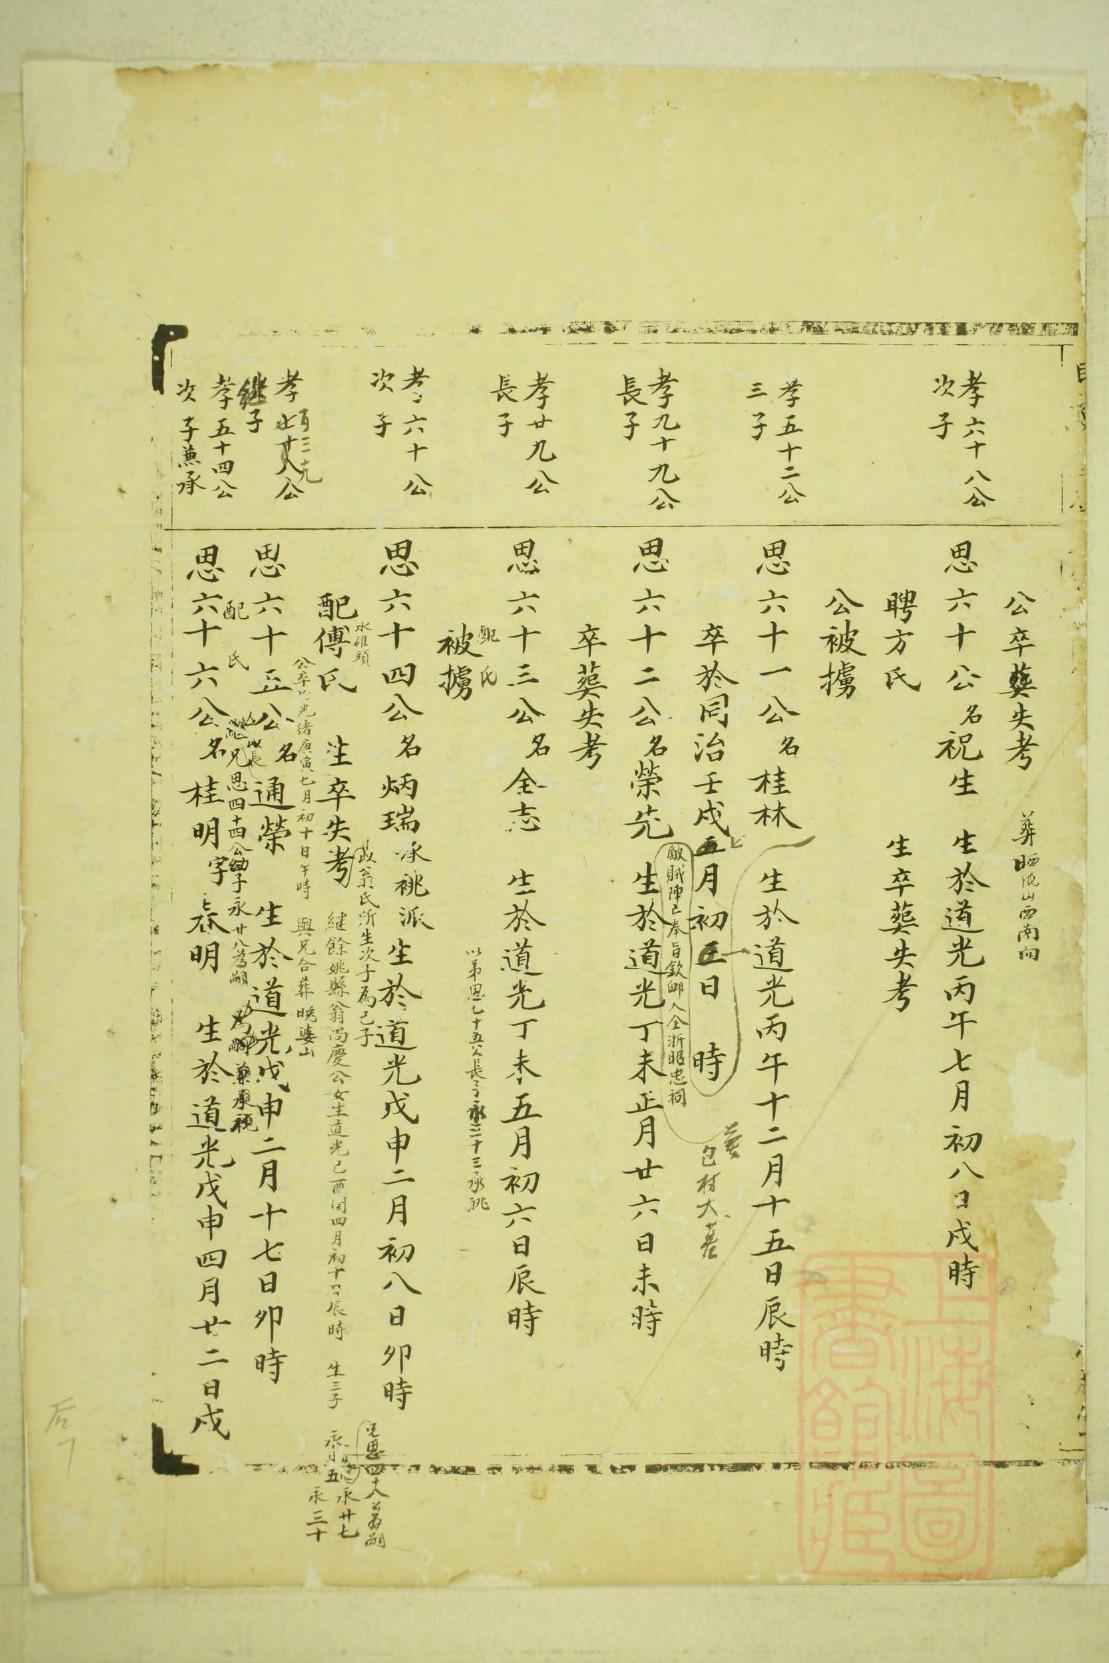 公卒葬失考
葬
山西南向
孝六十八公
次子
思六十公名祝生 生於道光丙午七月初八日戌時
聘方氏 生卒葬失考
公被擄
孝五十二公
三子
思六十一公名桂林 生於道光丙午十二月十五日辰時
卒於同治壬戌五月初五日 時
葬包村大墓
敵賊陣亡奉旨欽卹入全浙昭忠祠
孝九十九公
長子
思六十二公名榮先 生於道光丁未正月廿六日未時
卒葬失考
孝廿九公
長子
思六十三公名全志 生於道光丁未五月初六日辰時
配 氏
被擄
以弟思七十五公長子永三十三承祧
孝六十公
次子
思六十四公名炳瑞承祧派 生於道光戊申二月初八日卯時
水碓頭
配傅氏 生卒失考
繼餘姚縣翁尚慶公女生道光己酉閏四月初十日辰時 生三子
永廿七
永三十
公卒於光緒庚寅七月初十日午時 與兄合葬
孝
公
繼子
思六十五公名通榮 生於道光戊申二月十七日卯時
配 氏
兄思四十四公幼子永廿八為嗣
孝五十四公
次子兼承
思六十六公名桂明字春明 生於道光戊申四月廿二日戌
后7
上海圖書館藏